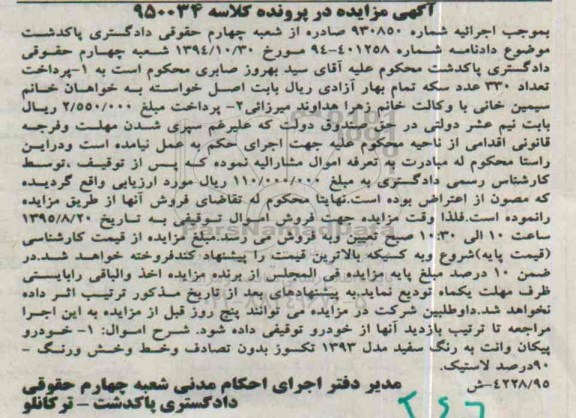 آگهی مزایده در پرونده کلاسه ۹۵۰۰۳۴
بموجب اجرائیه شماره ۹۳۰۸۵۰ صادره از شعبه چهارم حقوقی دادگستری پاکدشت
موضوع دادنامه شماره ۴۰۱۲۵۸-۹۴ مورخ ۱۳۹۴/۱۰/۳۰ شعبه چهارم حقوقی
دادگستری پاکدشت محکوم علیه آقای سید بهروز صابری محکوم است به ۱-پرداخت
تعداد ۳۳۰ عدد سکه تمام بهار آزادی ریال بابت اصل خواسته به خواهان خانم
سیمین خانی با وکالت خانم زهرا هداوند میرزائی۲- پرداخت مبلغ ۲/۵۵۰/۰۰۰ ریال
بابت نیم عشر دولتی در حق صندوق دولت که علیرغم سپری شدن مهلت وفرجه
قانونی اقدامی از ناحیه محکوم علیه جهت اجرای حکم به عمل نیامده است ودراین
راستا محکوم له مبادرت به تعرفه اموال مشارالیه نموده که پس از توقیف ،توسط
کارشناس رسمی دادگستری به مبلغ ۱۱۰/۰۰۰/۰۰۰ ریال مورد ارزیابی واقع گردیده
که مصون از اعتراض بوده است.نهایتا محکوم له تقاضای فروش آنها از طریق مزایده
رانموده است.فلذا وقت مزایده جهت فروش اموال توقیفی به تاریخ ۱۳۹۵/۸/۲۰
ساعت ۱۰ الی ۱۰:۳۰ صبح تعیین وبه فروش می رسد.مبلغ مزایده از قیمت کارشناسی
(قیمت پایه)شروع وبه کسیکه بالاترین قیمت را پیشنهاد کندفروخته خواهد شد.در
ضمن ۱۰ درصد مبلغ پایه مزایده فی المجلس از برنده مزایده اخذ والباقی رابایستی
ظرف مهلت یکماه تودیع نماید.به پیشنهادهای بعد از تاریخ مذکور ترتیب اثر داده
نخواهد شد.داوطلبین شرکت در مزایده می توانند پنج روز قبل از مزایده به این اجرا
مراجعه تا ترتیب بازدید آنها از خودرو توقیفی داده شود. شرح اموال: ۱- خودرو
پیکان وانت به رنگ سفید مدل ۱۳۹۳ تکسوز بدون تصادف وخط وخش ورنگ -
۹۰درصد لاستیک.
۴۲۲۸/۹۵-ش مدیر دفتر اجرای احکام مدنی شعبه چهارم حقوقی
دادگستری پاکدشت - ترکانلو
ParsNamadData